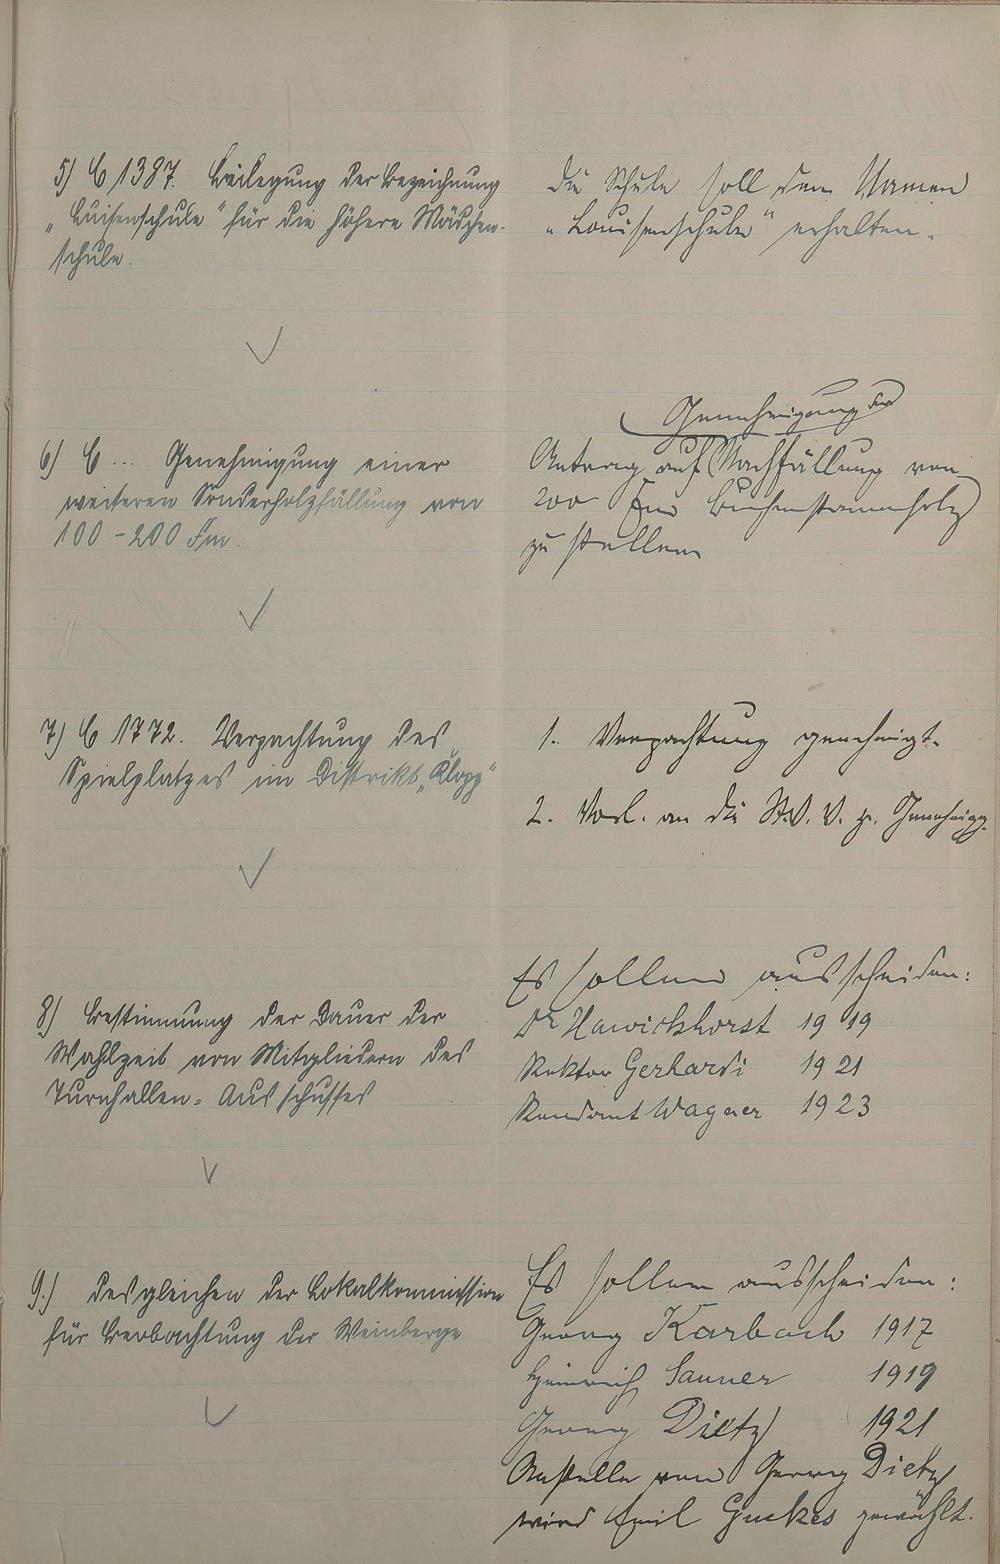 5) C 1387. Beilegung der Bezeichnung
„Luisenschule" für die höhere Mädchen-
schule.
die Schule soll den Namen
„Louisenschule" erhalten.
6) C ... Genehmigung einer
weiteren Sonderholzfällung von
100 - 200 Fm.
Genehmigung der
Antrag auf Nachfällung von
200 Fm Buchenstammholz
zu stellen
7) C 1772. Verpachtung des
Spielplatzes im Distrikt „Klopp"
1. Verpachtung genehmigt.
2. Vorl. an die St. V. V. z. Genehmigg.
8) Bestimmung der Dauer der
Wahlzeit von Mitgliedern des
Turnhallen-Ausschusses
Es sollen ausscheiden:
Dr Hawickhorst 1919
Rektor Gerhardi 1921
Rendant Wagner 1923
9.) desgleichen der Lokalkommission
für Beobachtung der Weinberge
Es sollen ausscheiden:
Georg Karbach 1917
Heinrich Sauner 1919
Georg Dietz 1921
Anstelle von Georg Dietz
wird Emil Guckes gewählt.